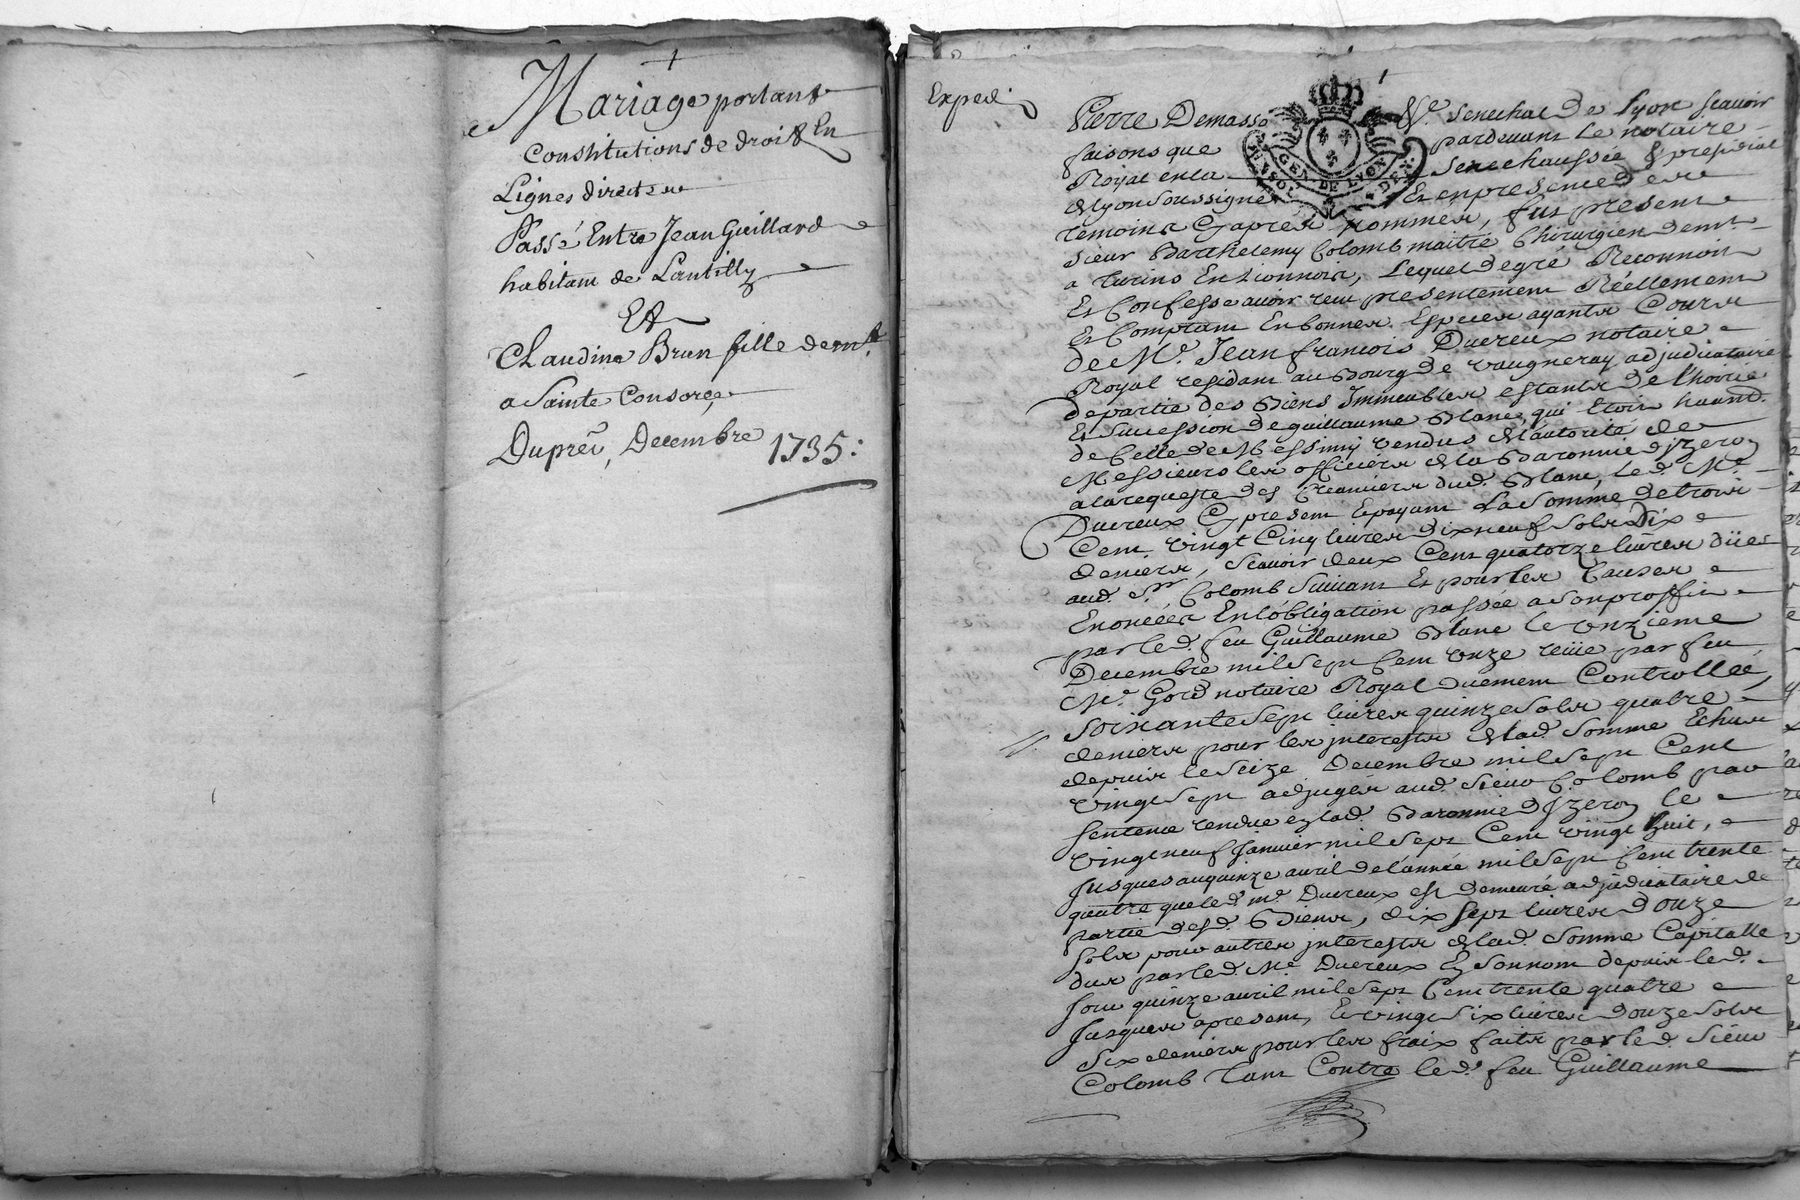 Mariage portant
Constitutions de droit En
Lignes directe
Passé Entre Jean Guillard
habitant de Lantilly
Et
Claudine Brun fille demt
a Sainte Consorce
Du premr Decembre 1735:
Exped
Pierre Demasso Sr Senechal de Lyon Scavoir
faisons que pardevant Le notaire
Royal en La Senechaussée & presidial
de lyon Soussigné Et en presence des
temoins Cy apres nommes, fut present
Sieur Barthelemy Colomb maitre Chirurgien demt
a Turins En Lionnois, Lequel de gré Reconnoit
Et Confesse avoir reçu presentement Réellement
Et Comptant En bonnes Especes ayants Cours
de Me Jean francois Ducreux notaire
Royal residant au Bourg de vaugneray adjudicataire
de partie des Biens Immeubles estants de l'hoirie
Et Succession de guillaume Blanc, qui Etoit
de Celle de Messimy vendus de l'autorité de
Messieurs les officiers de la Baronnie d'jzeron
a la requeste des Creanciers dud. Blanc, led. Me
Ducreux Cy present Et payant La Somme de trois
Cent vingt Cinq livres dix neuf Sols Dix
deniers, Scavoir deux Cent quatorze livres düe
aud. Sr Colomb Suivant Et pour les Causes
Enoncées En l'obligation passée a Son proffit
par led. feu Guillaume Blanc le onzieme
Decembre mil Sept Cent onze reçüe par feu
Me Gord notaire Royal Duement Controllée,
Soixante Sept livres quinze Sols quatre
deniers pour les jnterests de lad. Somme Echus
depuis le Seize Decembre mil Sept Cent
vingt Sept adjugés aud. Sieur Colomb par
Sentence rendue en lad. Baronnie d'Jzeron le
vingt neuf Janvier mil Sept Cent vingt huit,
Jusques au quinze avril de l'année mil Sept Cent trente
quatre que led. me Ducreux est demeuré adjudicataire de
partie desd. Biens, dix Sept livres Douze
Sols pour autres jnterests de lad. Somme Capitalle
dus par led. Me Ducreux En Son nom depuis led.
Jour quinze avril mil Sept Cent trente quatre
Jusques apresent, Et vingt Six livres Douze Sols
Six deniers pour les fraix faits par led. Sieur
Colomb Tant Contre led. feu Guillaume
GEN. DE LYON